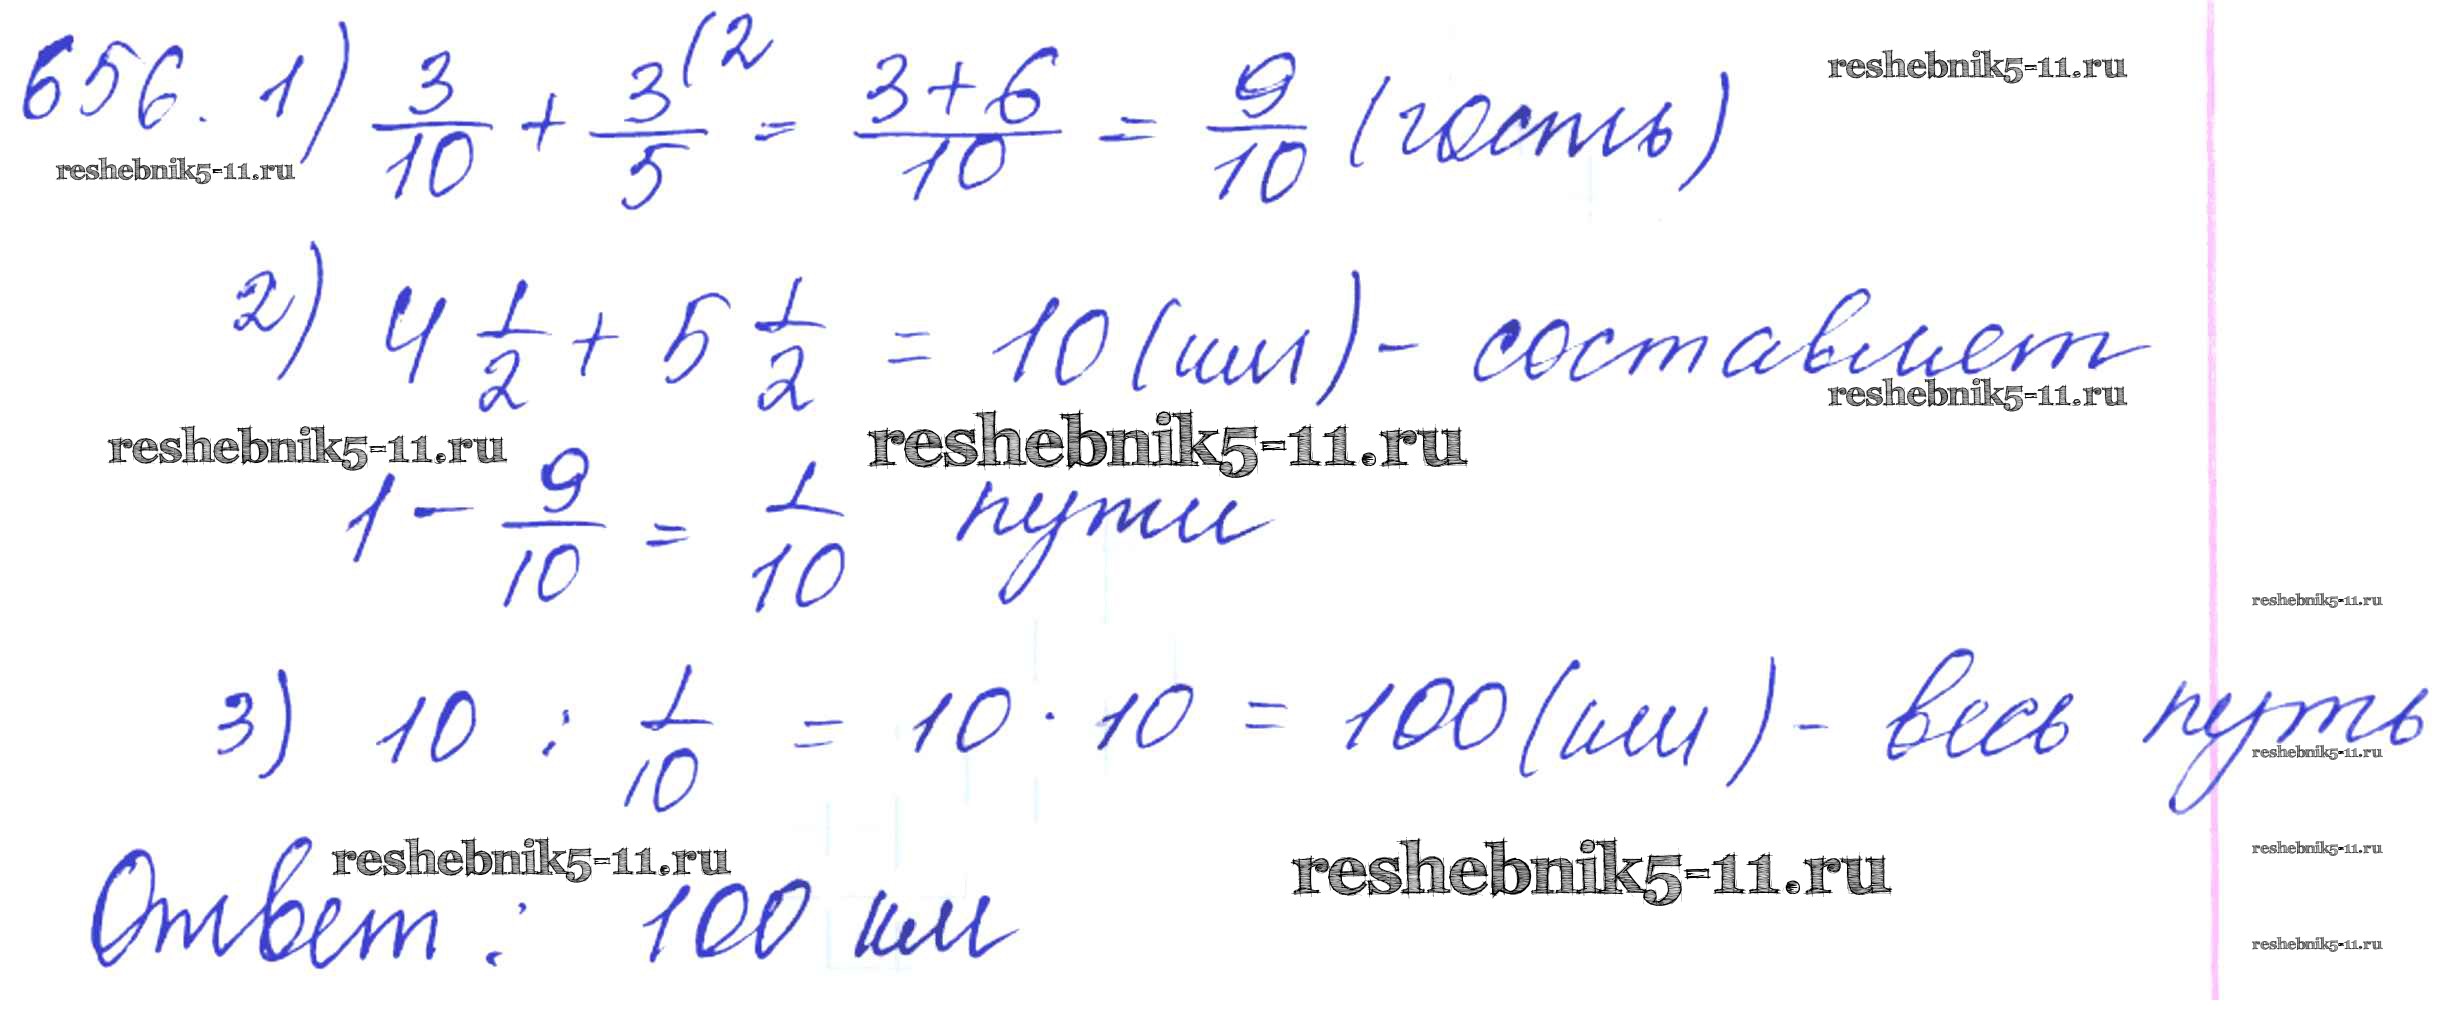 656. 1) 3/10 + 3/5 (2 = 3+6/10 = 9/10 (часть)
reshebnik5-11.ru
reshebnik5-11.ru
2) 4 1/2 + 5 1/2 = 10 (км) - составляет
reshebnik5-11.ru
reshebnik5-11.ru
reshebnik5-11.ru
1 - 9/10 = 1/10 пути
reshebnik5-11.ru
3) 10 : 1/10 = 10 · 10 = 100 (км) - весь путь
reshebnik5-11.ru
reshebnik5-11.ru
reshebnik5-11.ru
reshebnik5-11.ru
Ответ: 100 км
reshebnik5-11.ru